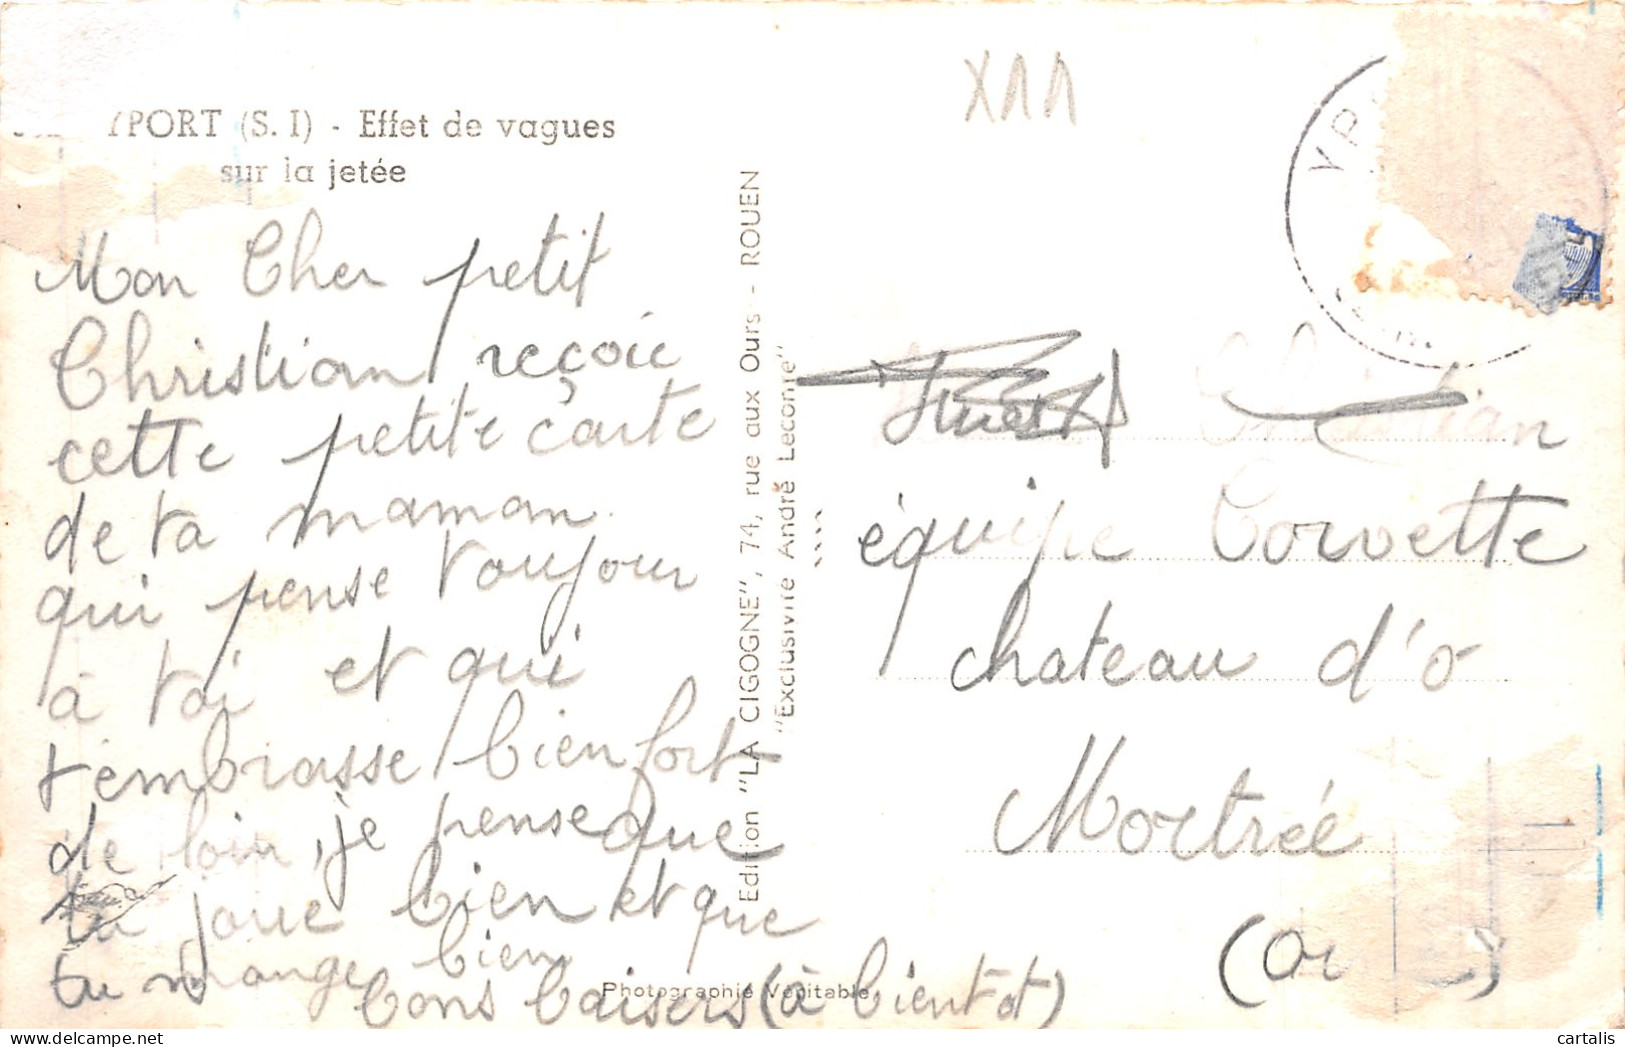 YPORT (S. I) - Effet de vagues
sur la jetée
X11
Mon Cher petit
Christian reçoie
cette petite carte
de ta maman
qui pense toujour
à toi et qui
t'embrasse bien fort
de loin, je pense que
tu joue bien et que
tu mange bien
bons baisers (à bientôt)
Edition "LA CIGOGNE", 74, rue aux Ours - ROUEN
"Exclusivité André Leconte"
Photographie Véritable
YP
Christian
équipe Corvette
chateau d'o
Mortrée
(Or
cartalis